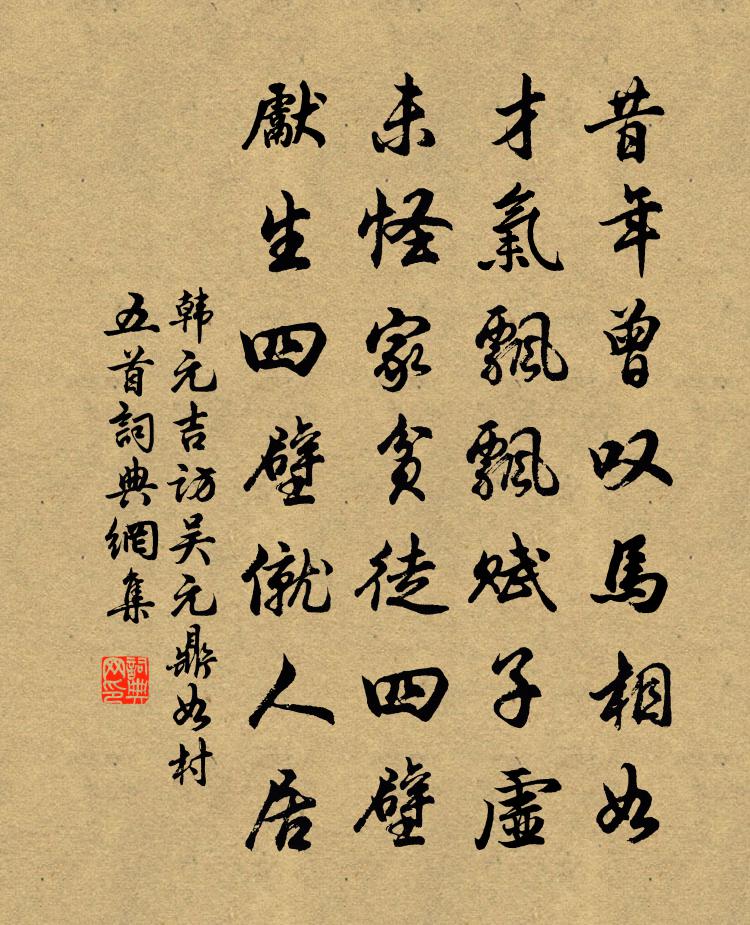 昔年曾叹馬相如
才氣飄飄赋子虛
未怪家贫徒四壁
獻生四壁僦人居
韩元吉访吴元鼎如村
五首詞典網集
詞典网印